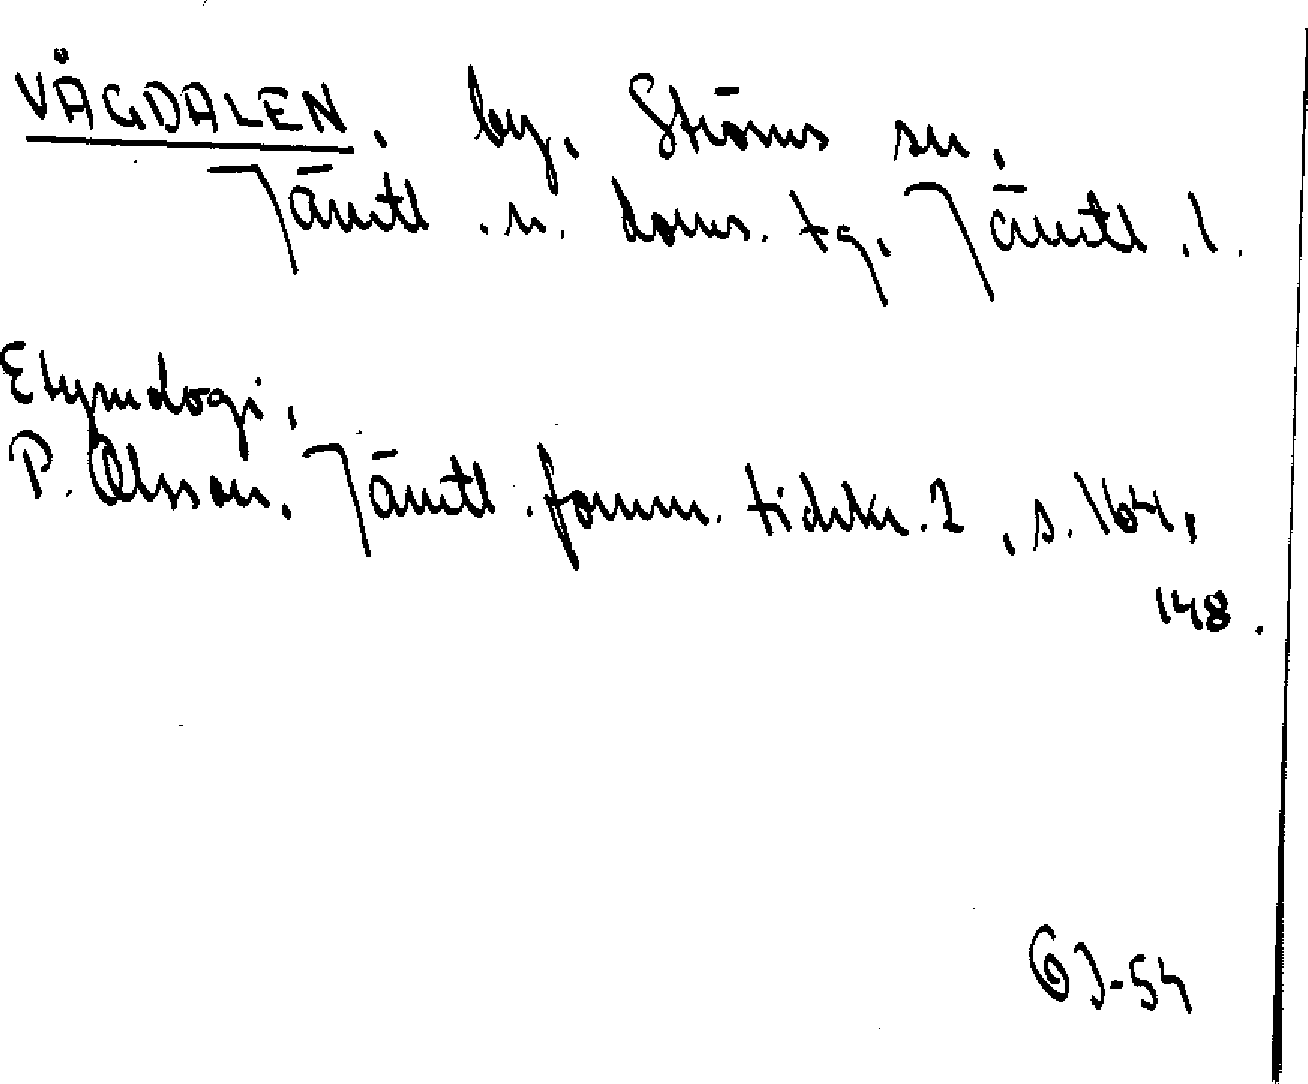 VÅGDALEN, by, Ströms sn,
Jämtl. n. doms. tg, Jämtl. l.
Etymologi,
P. Olsson, Jämtl. fornm. tidskr. 2, s. 164,
148.